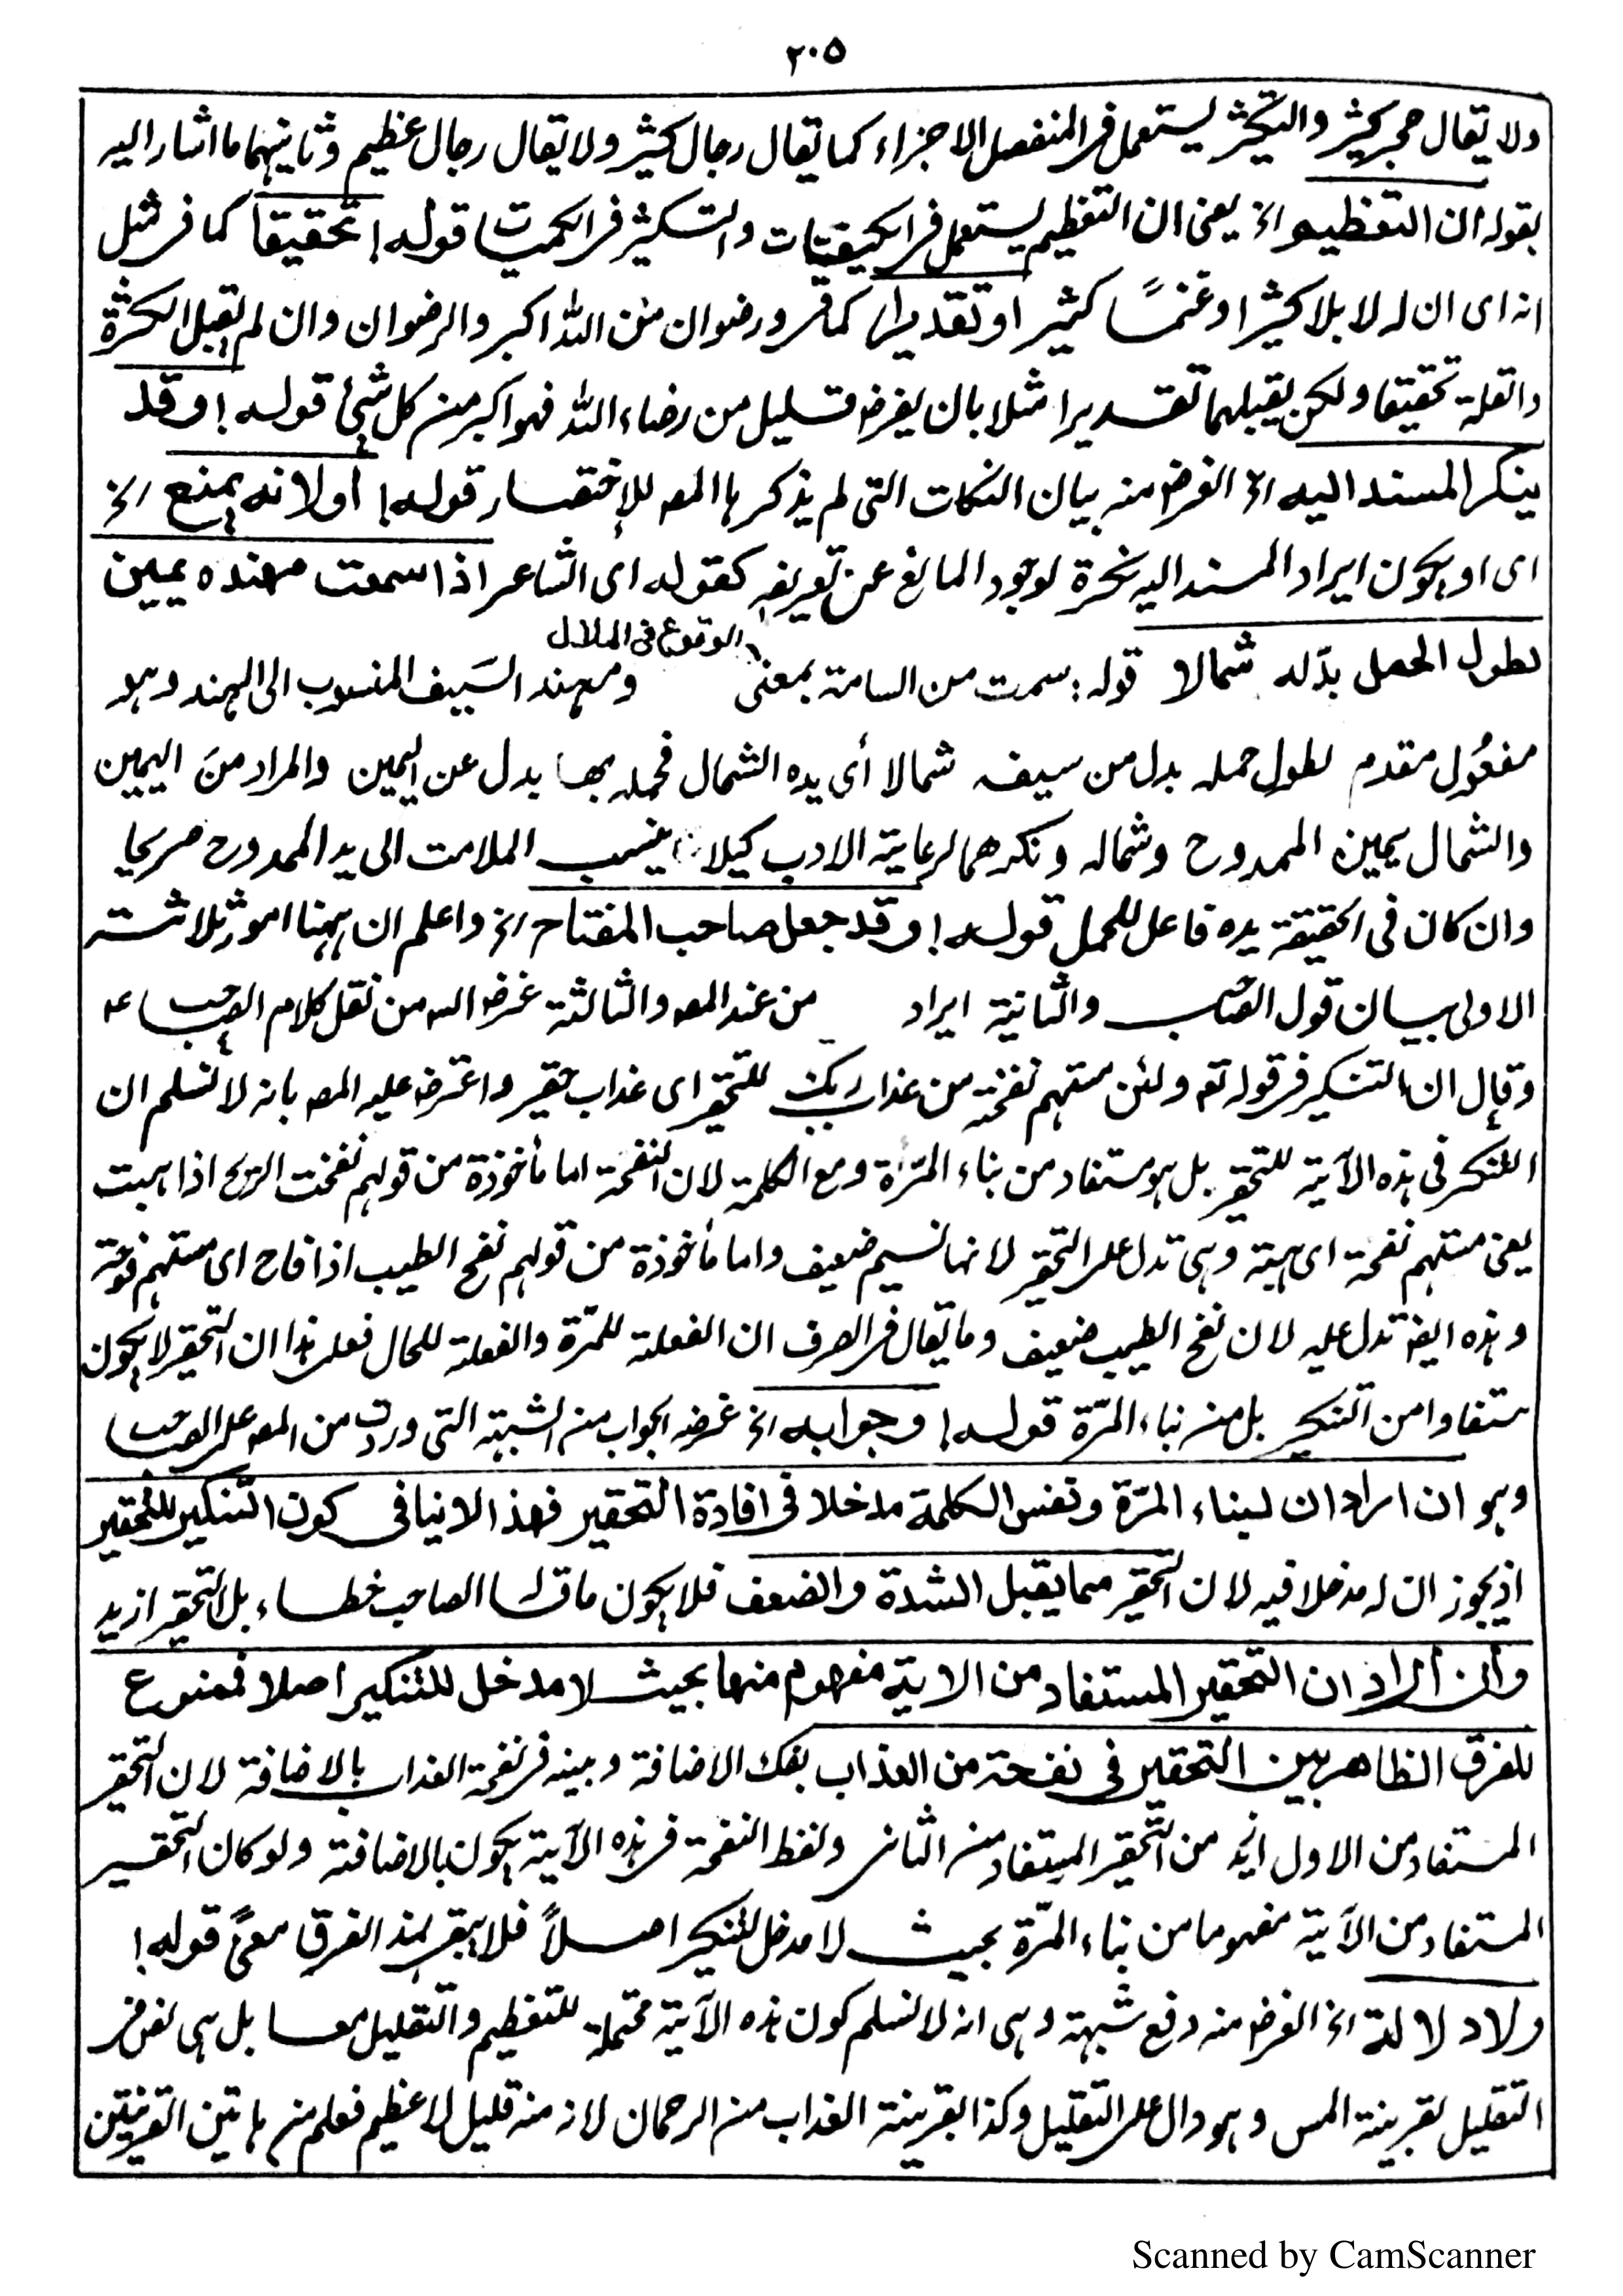 ٢٠٥
ولا يقال حجر كثير والتكثير يستعمل فى المنفصل الاجزاء كما يقال رجال كثير ولا يقال رجال عظيم وثانيهما ما اشار اليه
بقوله ان التعظيم الخ يعنى ان التعظيم يستعمل فى الكيفيات والتكثير فى الكميات قوله! تحقيقا كما فى مثل
انه اى ان له لابلا كثيرا وغنمًا كثير او تقديرا كما فى ورضوان من الله اكبر والرضوان وان لم يقبل الكثرة
والقلة تحقيقا ولكن يقبلهما تقديرا مثلا بان يفرض قليل من رضاء الله فهو اكبر من كل شئ قوله! وقد
ينكر المسند اليه الخ الغرض منه بيان النكات التى لم يذكرها المصـ للإختصار قوله! اولانه يمنع الخ
اى او يكون ايراد المسند اليه نكرة لوجود المانع عن تعريفه كقوله اى الشاعر اذا سمعت مهنده يمين
لطول الحمل بدّله شمالا قوله: سمت من السامة بمعنى الوقوع فى الملال ومهند السَيف المنسوب الى الهند وهو
مفعُول مقدم لطول حمله بدل من سيفه شمالا أى يده الشمال فحمله بها بدل عن اليمين والمراد منَ اليمين
والشمال يمين الممدوح وشماله ونكرهما لرعاية الادب كيلا ينسب الملامت الى يد الممدوح صريحا
وان كان فى الحقيقة يده فاعل للحمل قوله! وقد جعل صاحب المفتاح الخ واعلم ان ههنا امور ثلاثة
الاولى بيان قول الصاحب والثانية ايراد من عند المصـ والثالثة غرض الـمـ من نقل كلام الصاحب
وقال ان التنكير فى قوله تعـ ولئن مستهم نفحة من عذاب ربك للتحقير اى عذاب حقير واعترض عليه المصـ بانه لا نسلم ان
التنكير فى هذه الآية للتحقير بل هو مستفاد من بناء المرّة ومع الكلمة لان النفحة اما مأخوذة من قولهم نفحت الريح اذا هبت
يعنى مستهم نفحة اى هبة وهى تدل على التحقير لانها نسيم ضعيف واما مأخوذة من قولهم نفح الطيب اذا فاح اى مستهم فوحة
وهذه ايضـ تدل عليه لان نفح الطيب ضعيف وما يقال فى الصرف ان الفعلة للمرّة والفعلة للحال فعلى هذا ان التحقير لا يكون
مستفادا من التنكير بل من بناء المرّة قوله! وجوابه الخ غرضه الجواب من الشبهة التى وردت من المصـ على الصاحب
وهو ان اراد ان لبناء المرّة ونفس الكلمة مدخلا فى افادة التحقير فهذا لا ينافى كون التنكير للتحقير
اذ يجوز ان له مدخلا فيه لان التحقير مما يقبل الشدة والضعف فلا يكون ما قال الصاحب خطاء بل التحقير ازيد
وان أراد ان التحقير المستفاد من الاية مفهوم منها بحيث لا مدخل للتنكير اصلا فممنوع
للفرق الظاهر بين التحقير فى نفحة من العذاب بفك الاضافة وبينه فى نفحة العذاب بالاضافة لان التحقير
المستفاد من الاول ازيد من التحقير المستفاد من الثانى ولفظ النفحة فى هذه الآية يكون بالاضافة ولو كان التحقير
المستفاد من الآية مفهوما من بناء المرّة بحيث لا مدخل للتنكير اصلاً فلا يبقى لهذ الفرق معىً قوله!
ولاد لا لة الخ الغرض منه دفع شبهة وهى انه لا نسلم كون هذه الآية محتملة للتعظيم والتقليل معا بل هى نص فى
التقليل بقرينة المس وهو دال على التقليل وكذا بقرينة العذاب من الرحمان لانه منه قليل لا عظيم فعلم من هاتين القرينتين
Scanned by CamScanner